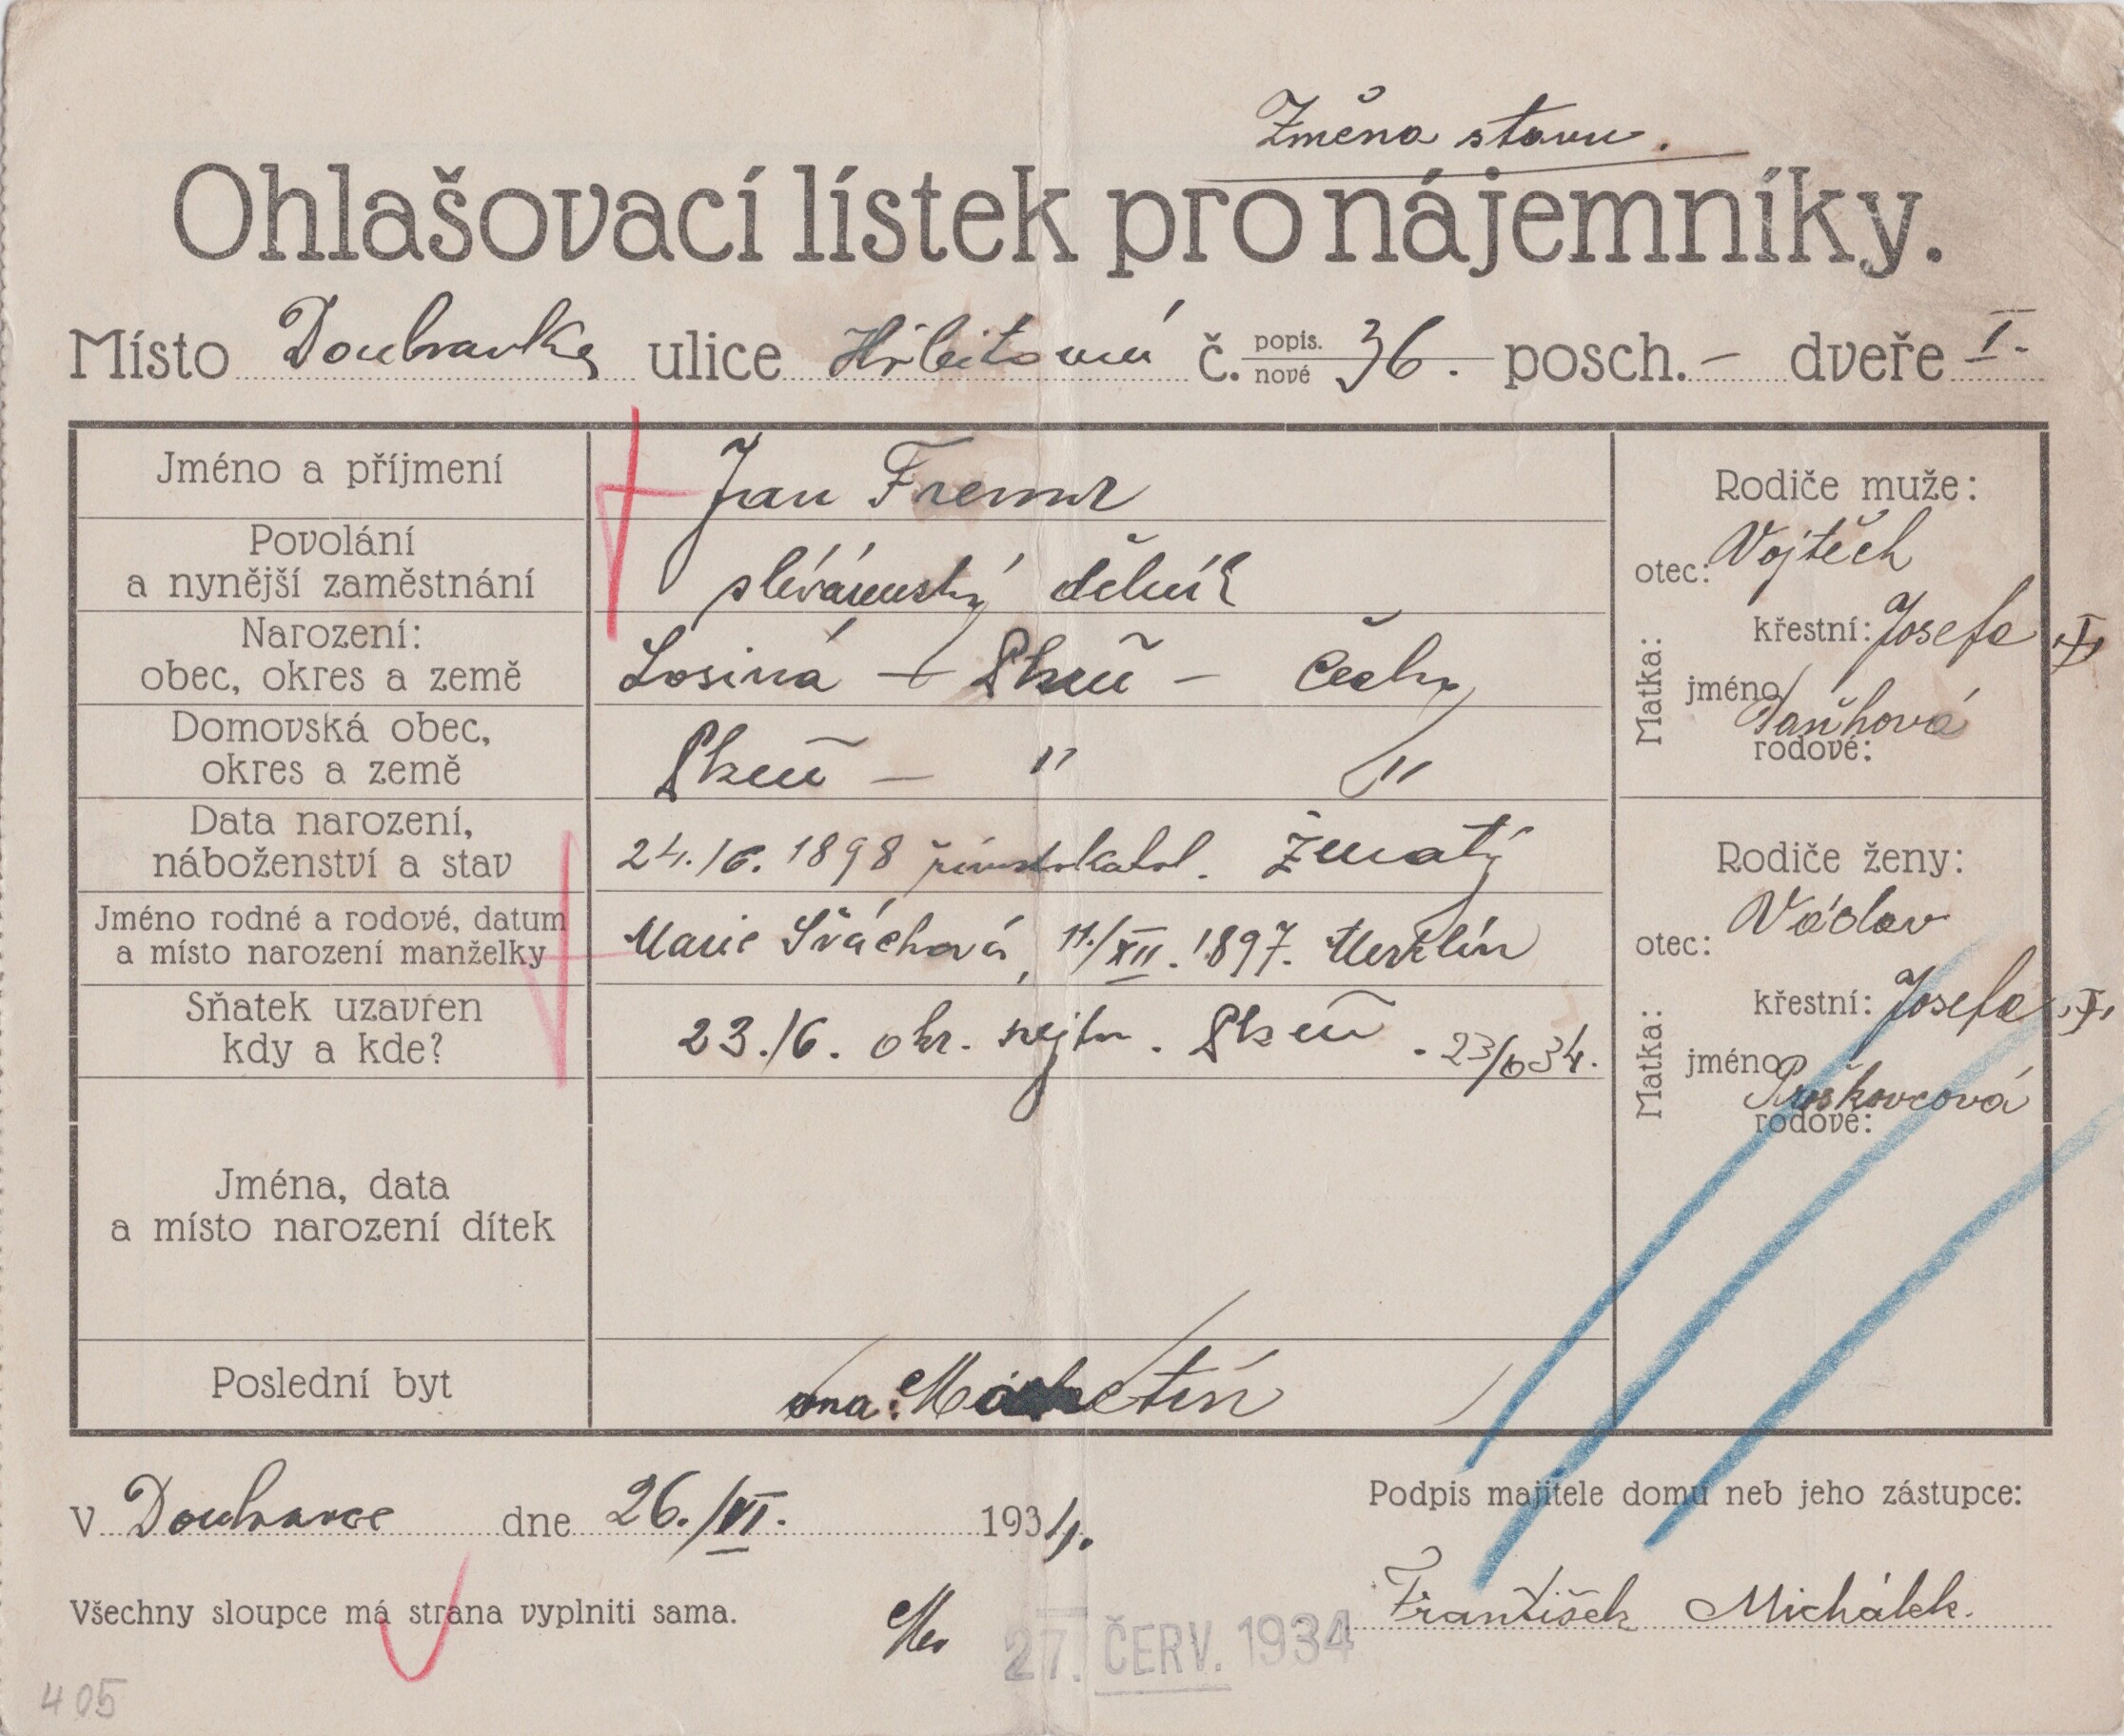 Změna stavu.
Ohlašovací lístek pro nájemníky.
Místo Doubravka ulice Hřbitovní č. popis. nové 36. posch. – dveře I.
Jméno a příjmení Jan Fremr
Povolání a nynější zaměstnání slévárenský dělník
Narození: obec, okres a země Losiná – Plzeň – Čechy
Domovská obec, okres a země Plzeň – " "
Data narození, náboženství a stav 24./6. 1898 římskokatol. ženatý
Jméno rodné a rodové, datum a místo narození manželky Marie Šváchová, 11./XII. 1897. Merklín
Sňatek uzavřen kdy a kde? 23./6. okr. hejtm. Plzeň. 23/6 34.
Jména, data a místo narození dítek
Poslední byt ona:
Rodiče muže:
otec: Vojtěch
Matka:
křestní: Josefa
jméno
rodové:
Rodiče ženy:
otec: Václav
Matka:
křestní: Josefa
jméno
rodové:
V Doubravce dne 26./VI. 1934.
Podpis majitele domu neb jeho zástupce:
František Michálek.
Všechny sloupce má strana vyplniti sama.
27. ČERV. 1934
405